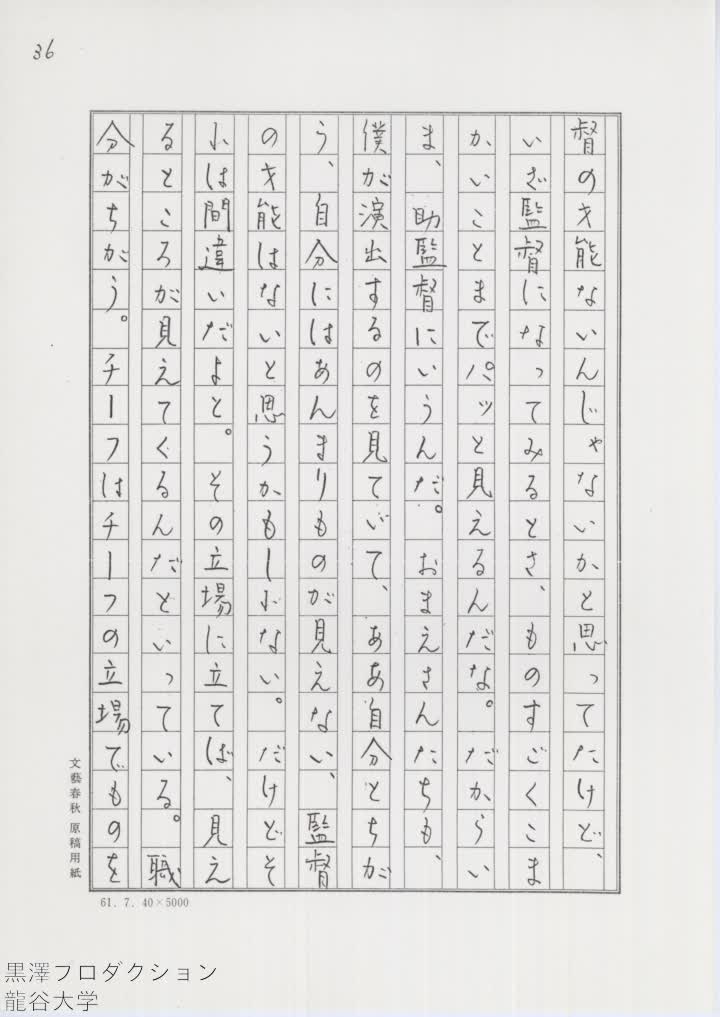 36
督の才能ないんじゃないかと思ってたけど、
いざ監督になってみるとさ、ものすごくこま
かいことまでパッと見えるんだな。だからい
ま、助監督にいうんだ。おまえさんたちも、
僕が演出するのを見ていて、ああ自分とちが
う、自分にはあんまりものが見えない、監督
の才能はないと思うかもしれない。だけどそ
れは間違いだよと。その立場に立てば、見え
るところが見えてくるんだといっている。職
分がちがう。チーフはチーフの立場でものを
文藝春秋 原稿用紙
61. 7. 40×5000
黒澤プロダクション
龍谷大学